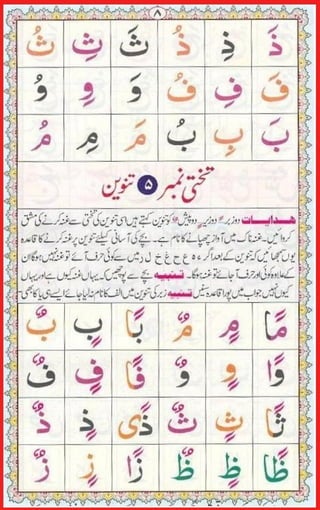 ٨
ذَ ذِ ذُ ثَ ثِ ثُ
فَ فِ فُ وَ وِ وُ
بَ بِ بُ مَ مِ مُ
تختی نمبر ۵ تنوین
ہدایات دو زبر ً دو زیر ٍ دو پیش ٌ کو تنوین کہتے ہیں اسی تنوین کی تختی سے غنہ کرنے کی مشق
کروائیں۔ غنہ ناک میں آواز چھپانے کا نام ہے۔ بچے کی آسانی کیلئے تنوین پر غنہ کرنے کا قاعدہ
یوں سمجھائیں کہ تنوین کے بعد اگر ء ہ ع ح غ خ ل ر میں سے کوئی حرف آئے تو غنہ نہیں ہوگا ان
کے علاوہ کوئی اور حرف آجائے تو غنہ ہوگا۔ تنبیہ بچے سے پوچھیں کہ یہاں غنہ کیوں ہے اور یہاں
کیوں نہیں جواب میں پورا قاعدہ سنیں تنبیہ زبر کی تنوین میں الف کا نام نہ لیا جائے ایسے ہی یا کا بھی
مًا مٍ مٌ بًا بٍ بٌ
وًا وٍ وٌ فًا فٍ فٌ
ثًا ثٍ ثٌ ذًى ذٍ ذٌ
ظًا ظٍ ظٌ زًا زٍ زٌ